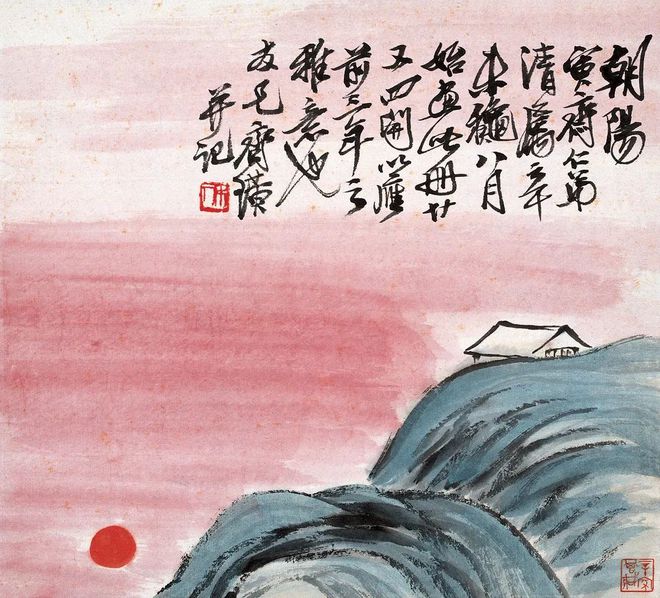 朝陽
寅齋仁弟
清屬辛
未穐八月
始畫此冊廿
又四開以應
前三年之
雅意也
友兄齊璜
并記
木人